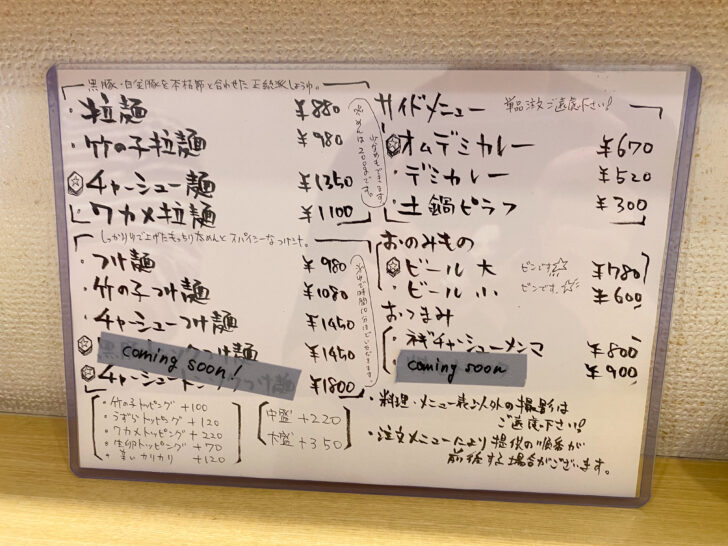 黒豚・白金豚を本格節と合わせた正統派しょうゆ。
・拉麺 ¥880
・竹の子拉麺 ¥980
チャーシュー麺 ¥1350
・ワカメ拉麺 ¥1100
めんは200gまです。
少なめもできます
しっかりゆで上げたもっちり太めんとスパイシーなつけ汁。
・つけ麺 ¥980
・竹の子つけ麺 ¥1080
・チャーシューつけ麺 ¥1450
coming soon! つけ麺 ¥1450
チャーシュー つけ麺 ¥1800
・竹の子トッピング +100
・うずらトッピング +120
・ワカメトッピング +220
・生卵トッピング +70
・辛いカリカリ +120
中盛 +220
大盛 +350
サイドメニュー 単品注文ご遠慮下さい!
オムデミカレー ¥670
・デミカレー ¥520
・土鍋ピラフ ¥300
おのみもの
ビール 大 ビンです ¥780
・ビール 小 ビンです。 ¥600
おつまみ
・ネギチャーシューメンマ ¥800
coming soon ¥900
・料理・メニュー表以外の撮影は
ご遠慮下さい!
・注文メニューにより提供の順番が
前後する場合がございます。